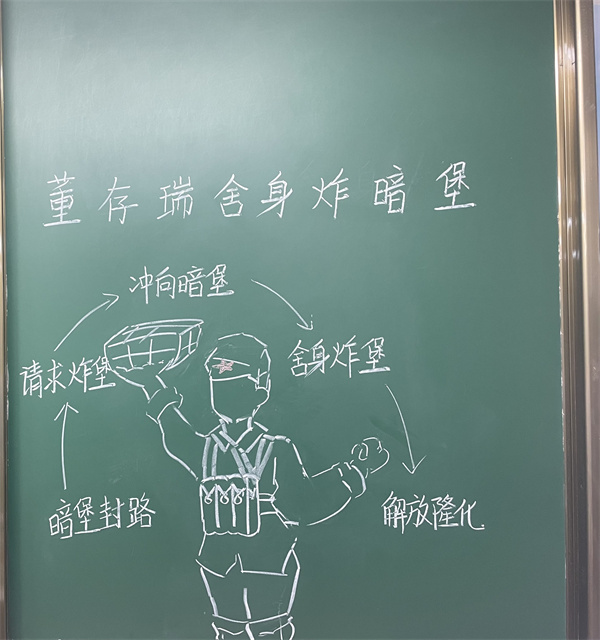 董存瑞舍身炸暗堡
冲向暗堡
请求炸堡
舍身炸堡
暗堡封路
解放隆化